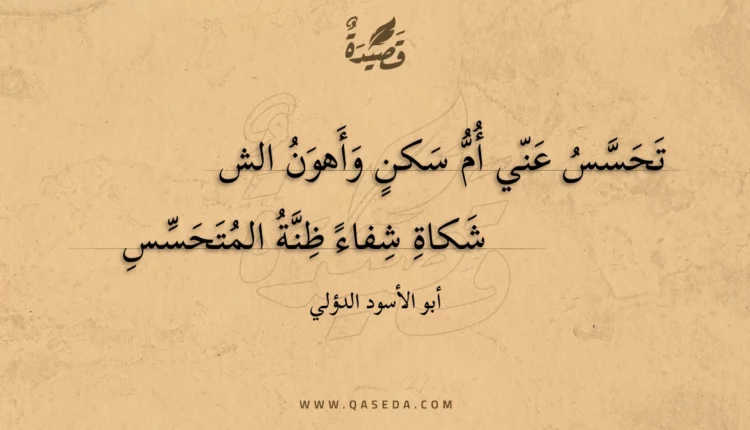 قَصِيْدَةٌ
تَحَسَّسُ عَنّي أُمُّ سَكنٍ وَأَهوَنُ الش
شَكاةِ شِفاءً ظِنَّةُ المُتَحَسِّسِ
أبو الأسود الدؤلي
WWW.QASEDA.COM